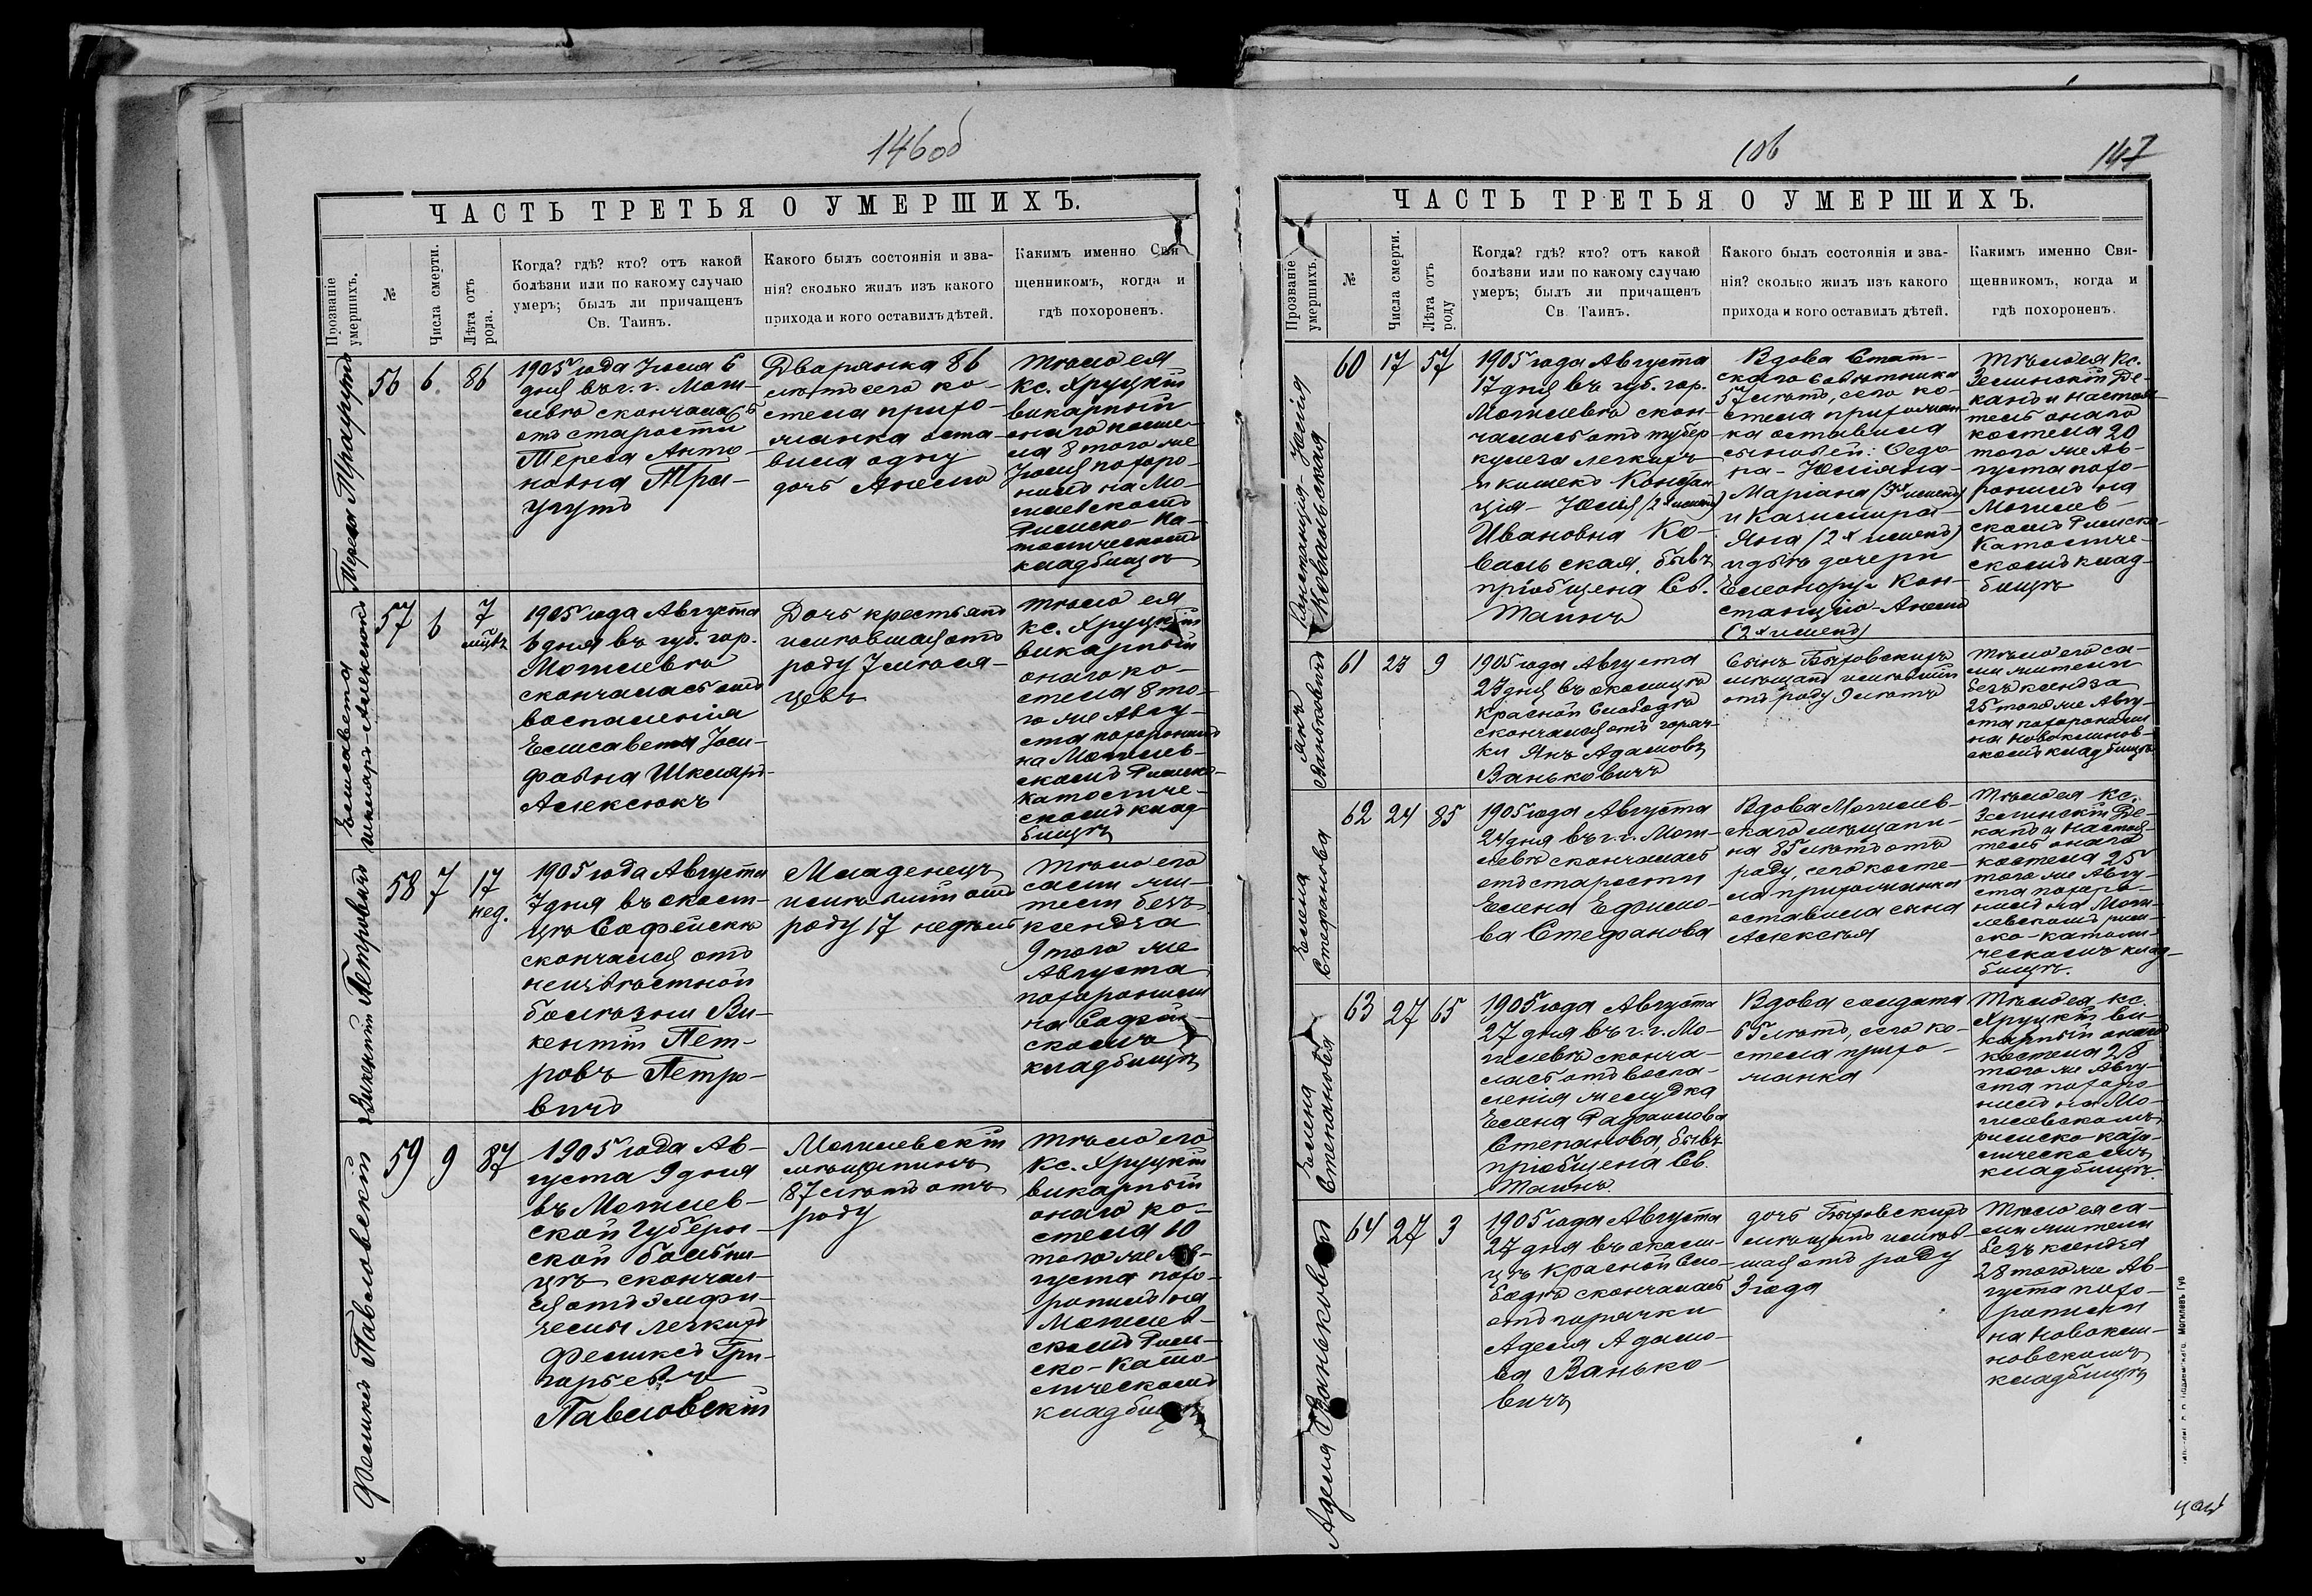 146 об
ЧАСТЬ ТРЕТЬЯ О УМЕРШИХЪ.
Прозваніе умершихъ.
№
Числа смерти.
Лѣта отъ рода.
Когда? гдѣ? кто? отъ какой
болѣзни или по какому случаю
умеръ; былъ ли причащенъ
Св. Таинъ.
Какого былъ состоянія и зва-
нія? сколько жилъ изъ какого
прихода и кого оставилъ дѣтей.
Каимъ именно Свя
щенникомъ, когда и
гдѣ похороненъ.
Тереса
56
6.
86
1905 года Іюля 6
дня въ г. г. Моги-
левѣ скончалась
отъ старости
Тереса Анто-
новна
Дворянка 86
лѣтъ сего ко-
стела прихо-
жанка оста-
вила одну
дочь Анелю
Тѣло ея
Кс. Хруцкій
викарный
онаго косте-
ла 8 того же
Іюля похоро-
нилъ на Мо-
гилевскомъ
Римско-Ка-
толическомъ
кладбищѣ
Елисавета
Шкляръ-Алексюкъ
57
6
7
мѣцъ
1905 года Августа
6 дня въ губ. гор.
Могилевѣ
скончалась отъ
воспаленія
Елисавета Іоси-
фовна Шкляръ-
Алексюкъ
Дочь крестьянъ
жившая отъ
роду 7 мѣся-
цевъ
Тѣло ея
кс. Хруцкій
викарный
онаго ко-
стела 8 то-
го же Авгу-
ста похоронилъ
на Могилев-
скомъ Римско-
католиче-
скомъ клад-
бищѣ
Викентій Петровичъ
58
7
17
нед.
1905 года Августа
7 дня въ околи-
цѣ Софейскѣ
скончался отъ
неизвѣстной
болѣзни Ви-
кентій Пет-
ровъ Петро-
вичъ
Младенецъ
жившій отъ
роду 17 недѣль
Тѣло его
сами жи-
тели безъ
ксендза
9 того же
Августа
похоронили
на Софій-
скомъ
кладбищѣ
Феликсъ Павловскій
59
9
87
1905 года Ав-
густа 9 дня
въ Могилев-
ской Губерн-
ской больни-
цѣ скончал-
ся отъ эмфи-
земы легкихъ
Феликсъ Гри-
горьевъ
Павловскій
Могилевскій
мѣщанинъ
87 лѣтъ отъ
роду
Тѣло его
Кс. Хруцкій
викарный
онаго ко-
стела 10
того же Ав-
густа похо-
ронилъ на
Могилев-
скомъ Рим-
ско-Като-
лическомъ
кладбищѣ
106
147
ЧАСТЬ ТРЕТЬЯ О УМЕРШИХЪ.
Прозваніе умершихъ.
№
Числа смерти.
Лѣта отъ роду
Когда? гдѣ? кто? отъ какой
болѣзни или по какому случаю
умеръ; былъ ли причащенъ
Св. Таинъ.
Какого былъ состоянія и зва-
нія? сколько жилъ изъ какого
прихода и кого оставилъ дѣтей.
Какимъ именно Свя-
щенникомъ, когда и
гдѣ похороненъ.
Констанція-Юлія
Ковальская
60
17
57
1905 года Августа
17 дня въ губ. гор.
Могилевѣ скон-
чалась отъ тубер
кулеза легкихъ
и кишекъ Констан
ція-Юлія (2хъ именъ)
Ивановна Ко-
вальская, бывъ
пріобщена Св.
Таинъ
Вдова Стат-
скаго Совѣтника
57 лѣтъ, сего ко-
стела прихожан-
ка оставила
сыновей:
Юліана-
Маріана (3хъ именъ)
и Казимира-
Яна (2хъ именъ)
и двѣ дочери
Елеонору и Кон-
станцію-Анелю
(2хъ именъ)
Тѣло ея Кс.
Зелинскій Де-
канъ и настоя-
тель онаго
костела 20
того же Ав-
густа похо-
ронилъ на
Могилев-
скомъ Римско-
Католиче-
скомъ клад-
бищѣ
Янъ
Ваньковичъ
61
23
9
1905 года Августа
23 дня въ околицѣ
Красной Слободкѣ
скончался отъ горяч-
ки Янъ Адамовъ
Ваньковичъ
Сынъ Быховскихъ
мѣщанъ жившій
отъ роду 9 лѣтъ
Тѣло его са-
ми жители
безъ ксендза
25 того же Авгу-
ста похоронили
на Новоклинов-
скомъ кладбищѣ
Елена
Стефанова
62
24
85
1905 года Августа
24 дня въ г. г. Моги-
левѣ скончалась
отъ старости
Елена Ефимо-
ва Стефанова
Вдова Могилев-
скаго мѣщани-
на 85 лѣтъ отъ
роду, сего косте-
ла прихожанка
оставила сына
Алексѣя
Тѣло ея Кс.
Зелинскій Де-
канъ и настоя-
тель онаго
костела 25
того же Авгу-
ста похоро-
нилъ на Моги-
левскомъ рим-
ско-католи-
ческомъ клад-
бищѣ.
Елена
Степановa
63
27
65
1905 года Августа
27 дня въ г. г. Мо-
гилевѣ сконча-
лась отъ воспа-
ленія желудка
Елена Рафаилова
Степанова, бывъ
пріобщена Св.
Таинъ.
Вдова солдата
65 лѣтъ, сего ко-
стела прихо-
жанка
Тѣло ея кс.
Хруцкій ви-
карный онаго
костела 28
того же Авгу-
ста похоро-
нилъ на Мо-
гилевскомъ
римско-като-
лическомъ
кладбищѣ.
Аделя Ваньковичъ
64
27
3
1905 года Августа
27 дня въ околи-
цѣ Красной Сло-
бодкѣ скончалась
отъ горячки
Аделя Адамо-
ва Ванько-
вичъ
дочь Быховскихъ
мѣщанъ жив-
шая отъ роду
3 года
Тѣло ея са-
ми жители
безъ ксендза
28 того же Ав-
густа похо-
ронили
на Новокли-
новскомъ
кладбищѣ